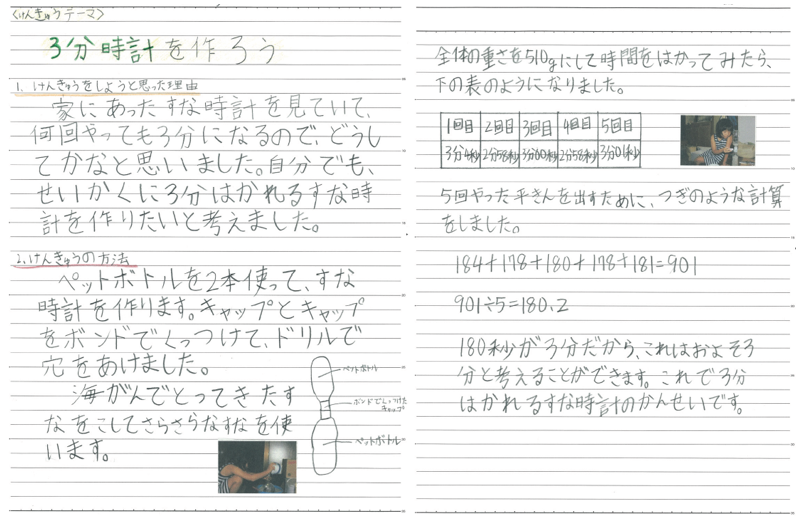 〈けんきゅうテーマ〉
3分時計を作ろう
1. けんきゅうをしようと思った理由
家にあったすな時計を見ていて、
何回やっても3分になるので、どうし
てかなと思いました。自分でも、
せいかくに3分はかれるすな時
計を作りたいと考えました。
2. けんきゅうの方法
ペットボトルを2本使って、すな
時計を作ります。キャップとキャップ
をボンドでくっつけて、ドリルで
穴をあけました。
海がんでとってきたす
なをこしてさらさらなすなを使
います。
ペットボトル
ボンドでくっつけた
キャップ
ペットボトル
全体の重さを510gにして時間をはかってみたら、
下の表のようになりました。
1回目 2回目 3回目 4回目 5回目
3分4秒 2分58秒 3分00秒 2分58秒 3分01秒
5回やった平きんを出すために、つぎのような計算
をしました。
184+178+180+178+181=901
901÷5=180.2
180秒が3分だから、これはおよそ3
分と考えることができます。これで3分
はかれるすな時計のかんせいです。